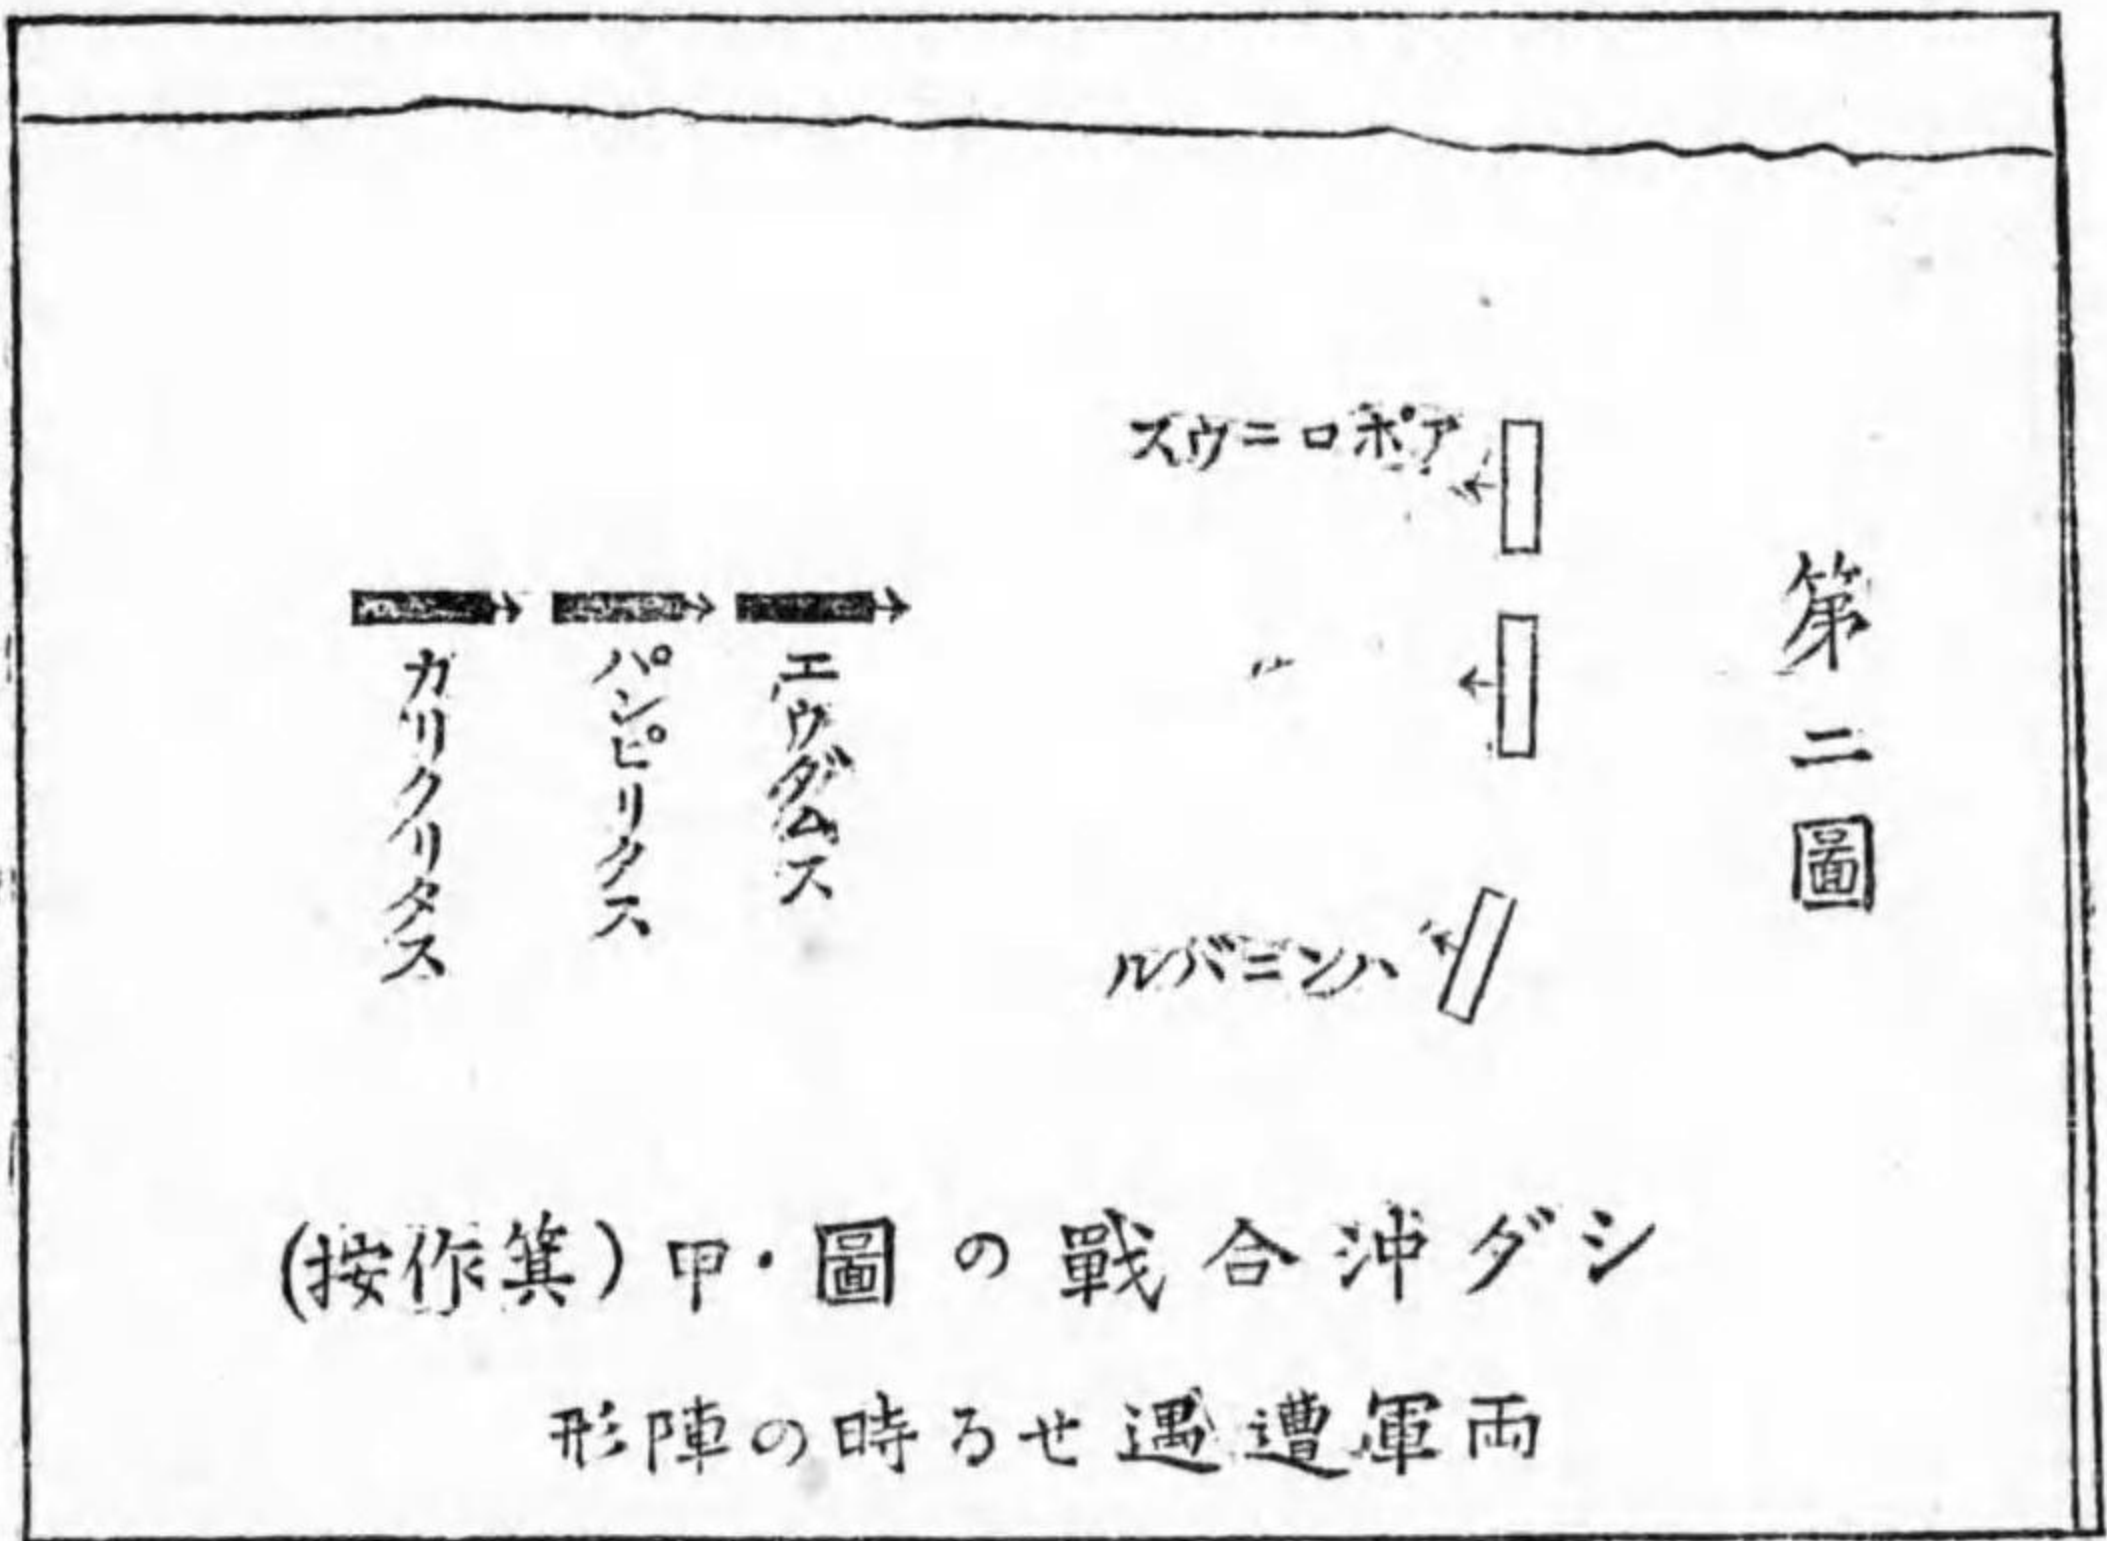 第二圖
アポロニウス
ハンニバル
エウダムス
パンピリクス
カリクリタス
シダ沖合戰の圖・甲(箕作按)
両軍遭遇せる時の陣形